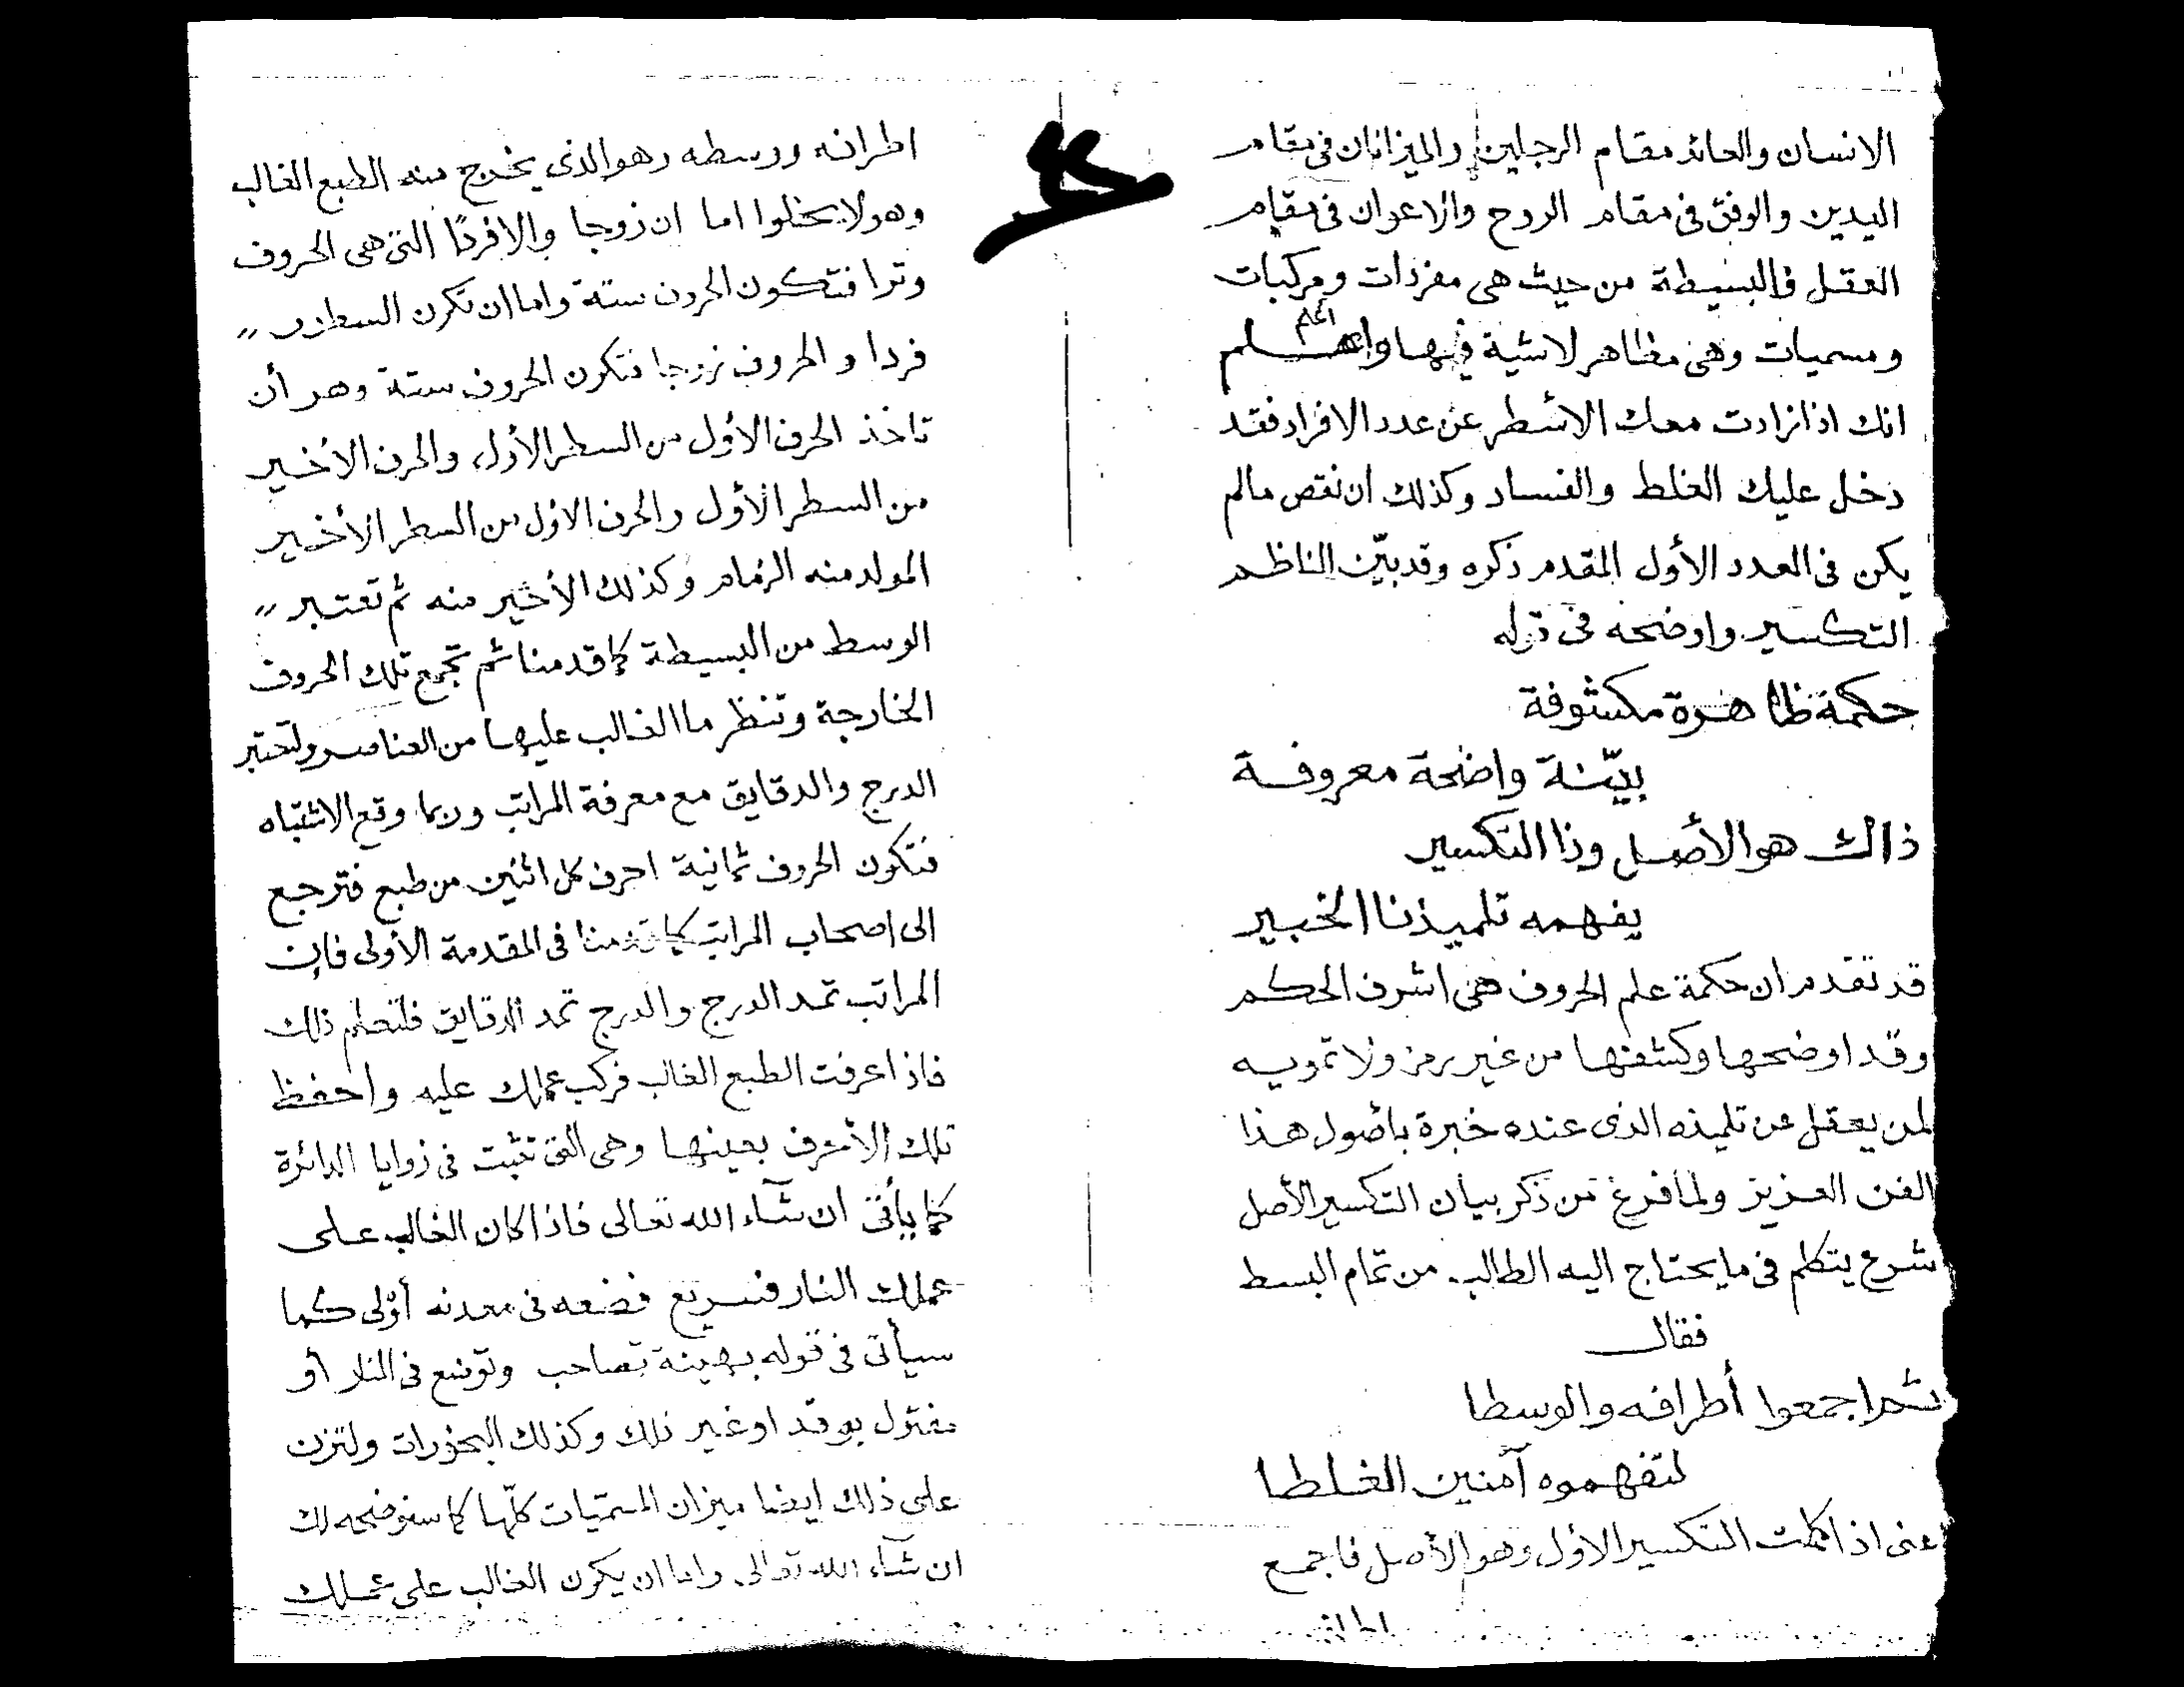 الانسان والعائد مقام الرجلين والميزانان فى مقام
اليدين والوفق فى مقام الروح والاعوان فى مقام
العقل فالبسيطة من حيث هى مفردات ومركبات
ومسميات وهى مظاهر لاشية فيها واعلم
انك اذا زادت معك الأسطر عن عدد الافراد فقد
دخل عليك الغلط والفساد وكذلك ان نقص مالم
يكن فى العدد الأول المقدم ذكره وقد بيّن الناظم
التكسير واوضحه فى قوله
حكمة ظاهرة مكشوفة
بيّنة واضحة معروفة
ذاك هو الأصل وذا التكسير
يفهمه تلميذنا الخبير
قد تقدم ان حكمة علم الحروف هى اشرف الحكم
وقد اوضحها وكشفها من غير رمز ولا تمويه
لمن يعقل من تلميذه الذى عنده خبرة بأصول هذا
الفن العزيز ولما فرغ من ذكر بيان التكسير الأصل
شرع يتكلم فى ما يحتاج اليه الطالب من تمام البسط
فقال
اجمعوا أطرافه والوسطا
لتفهموه آمنين الغلطا
اذا كملت التكسير الأول وهو الأصل فاجمع
اطرافه
اطرافه ووسطه وهو الذى يخرج منه الطبع الغالب
وهو لا يخلوا اما ان زوجا والا فردًا التى هى الحروف
وترا فتكون الحروف ستة واما ان تكون السطور "
فردا والحروف زوجا فتكون الحروف ستة وهو أن
تاخذ الحرف الأول من السطر الأول، والحرف الأخير
من السطر الأول والحرف الاول من السطر الأخير
المولد منه الزمام وكذلك الأخير منه ثم تعتبر "
الوسط من البسيطة كما قدمنا ثم تجمع تلك الحروف
الخارجة وتنظر ما الغالب عليها من العناصر ولتعتبر
الدرج والدقايق مع معرفة المراتب وربما وقع الاشتباه
فتكون الحروف ثمانية احرف كل اثنين من طبع فترجع
الى اصحاب المراتب كما قدمنا فى المقدمة الأولى فإن
المراتب تمد الدرج والدرج تمد الدقايق فلتعلم ذلك
فاذا عرفت الطبع الغالب فركب عملك عليه واحفظ
تلك الأحرف بعينها وهى التى تثبت فى زوايا الدائرة
كما يأتى ان شآء الله تعالى فاذا كان الغالب على
عملك النار فسريع فضعه فى معدنه أوْلى كما
سيأتى فى قوله بهينة تصاحب وتوضع فى النار أو
مفتول يوقد او غير ذلك وكذلك البخورات ولتزن
على ذلك ايضا ميزان المسمّيات كلّها كما سنوضحه لك
ان شآء الله تعالى واما ان يكون الغالب على عملك